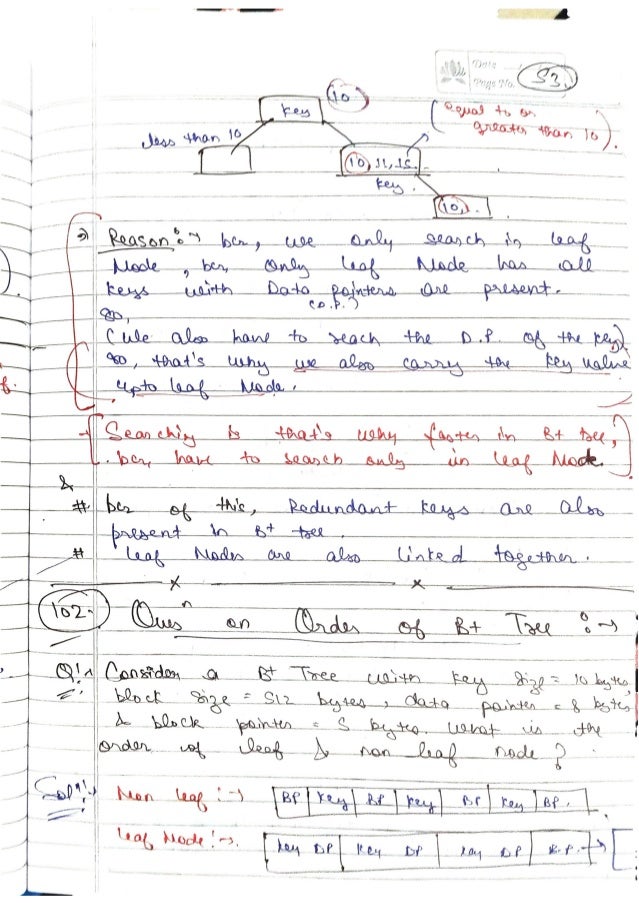 Date
Page No. 53.
10
key
less than 10
equal to or
greater than 10).
10, 11, 15.
key.
10, .
Reason :→ bcz, we only search in leaf
Node, bcz, only leaf Node has all
keys with Data Pointers are present.
(D.P.)
So,
(we also have to reach the D.P. of the key)
So, that's why we also carry the key value
upto leaf Node.
Searching is that's why faster in B+ tree,
bcz, have to search only in leaf Node.
&
# bcz of this, Redundant keys are also
present in B+ tree.
# leaf Nodes are also linked together.
x x
102. Quesn on Order of B+ Tree :→
Q! Consider a B+ Tree with key size = 10 bytes,
block size = 512 bytes, data pointer = 8 bytes
& block pointer = 5 bytes. What is the
order of leaf & non leaf node?
Soln!→ Non leaf :→ BP key BP key BP key BP.
leaf Node!→. key DP key DP key DP B.P.→